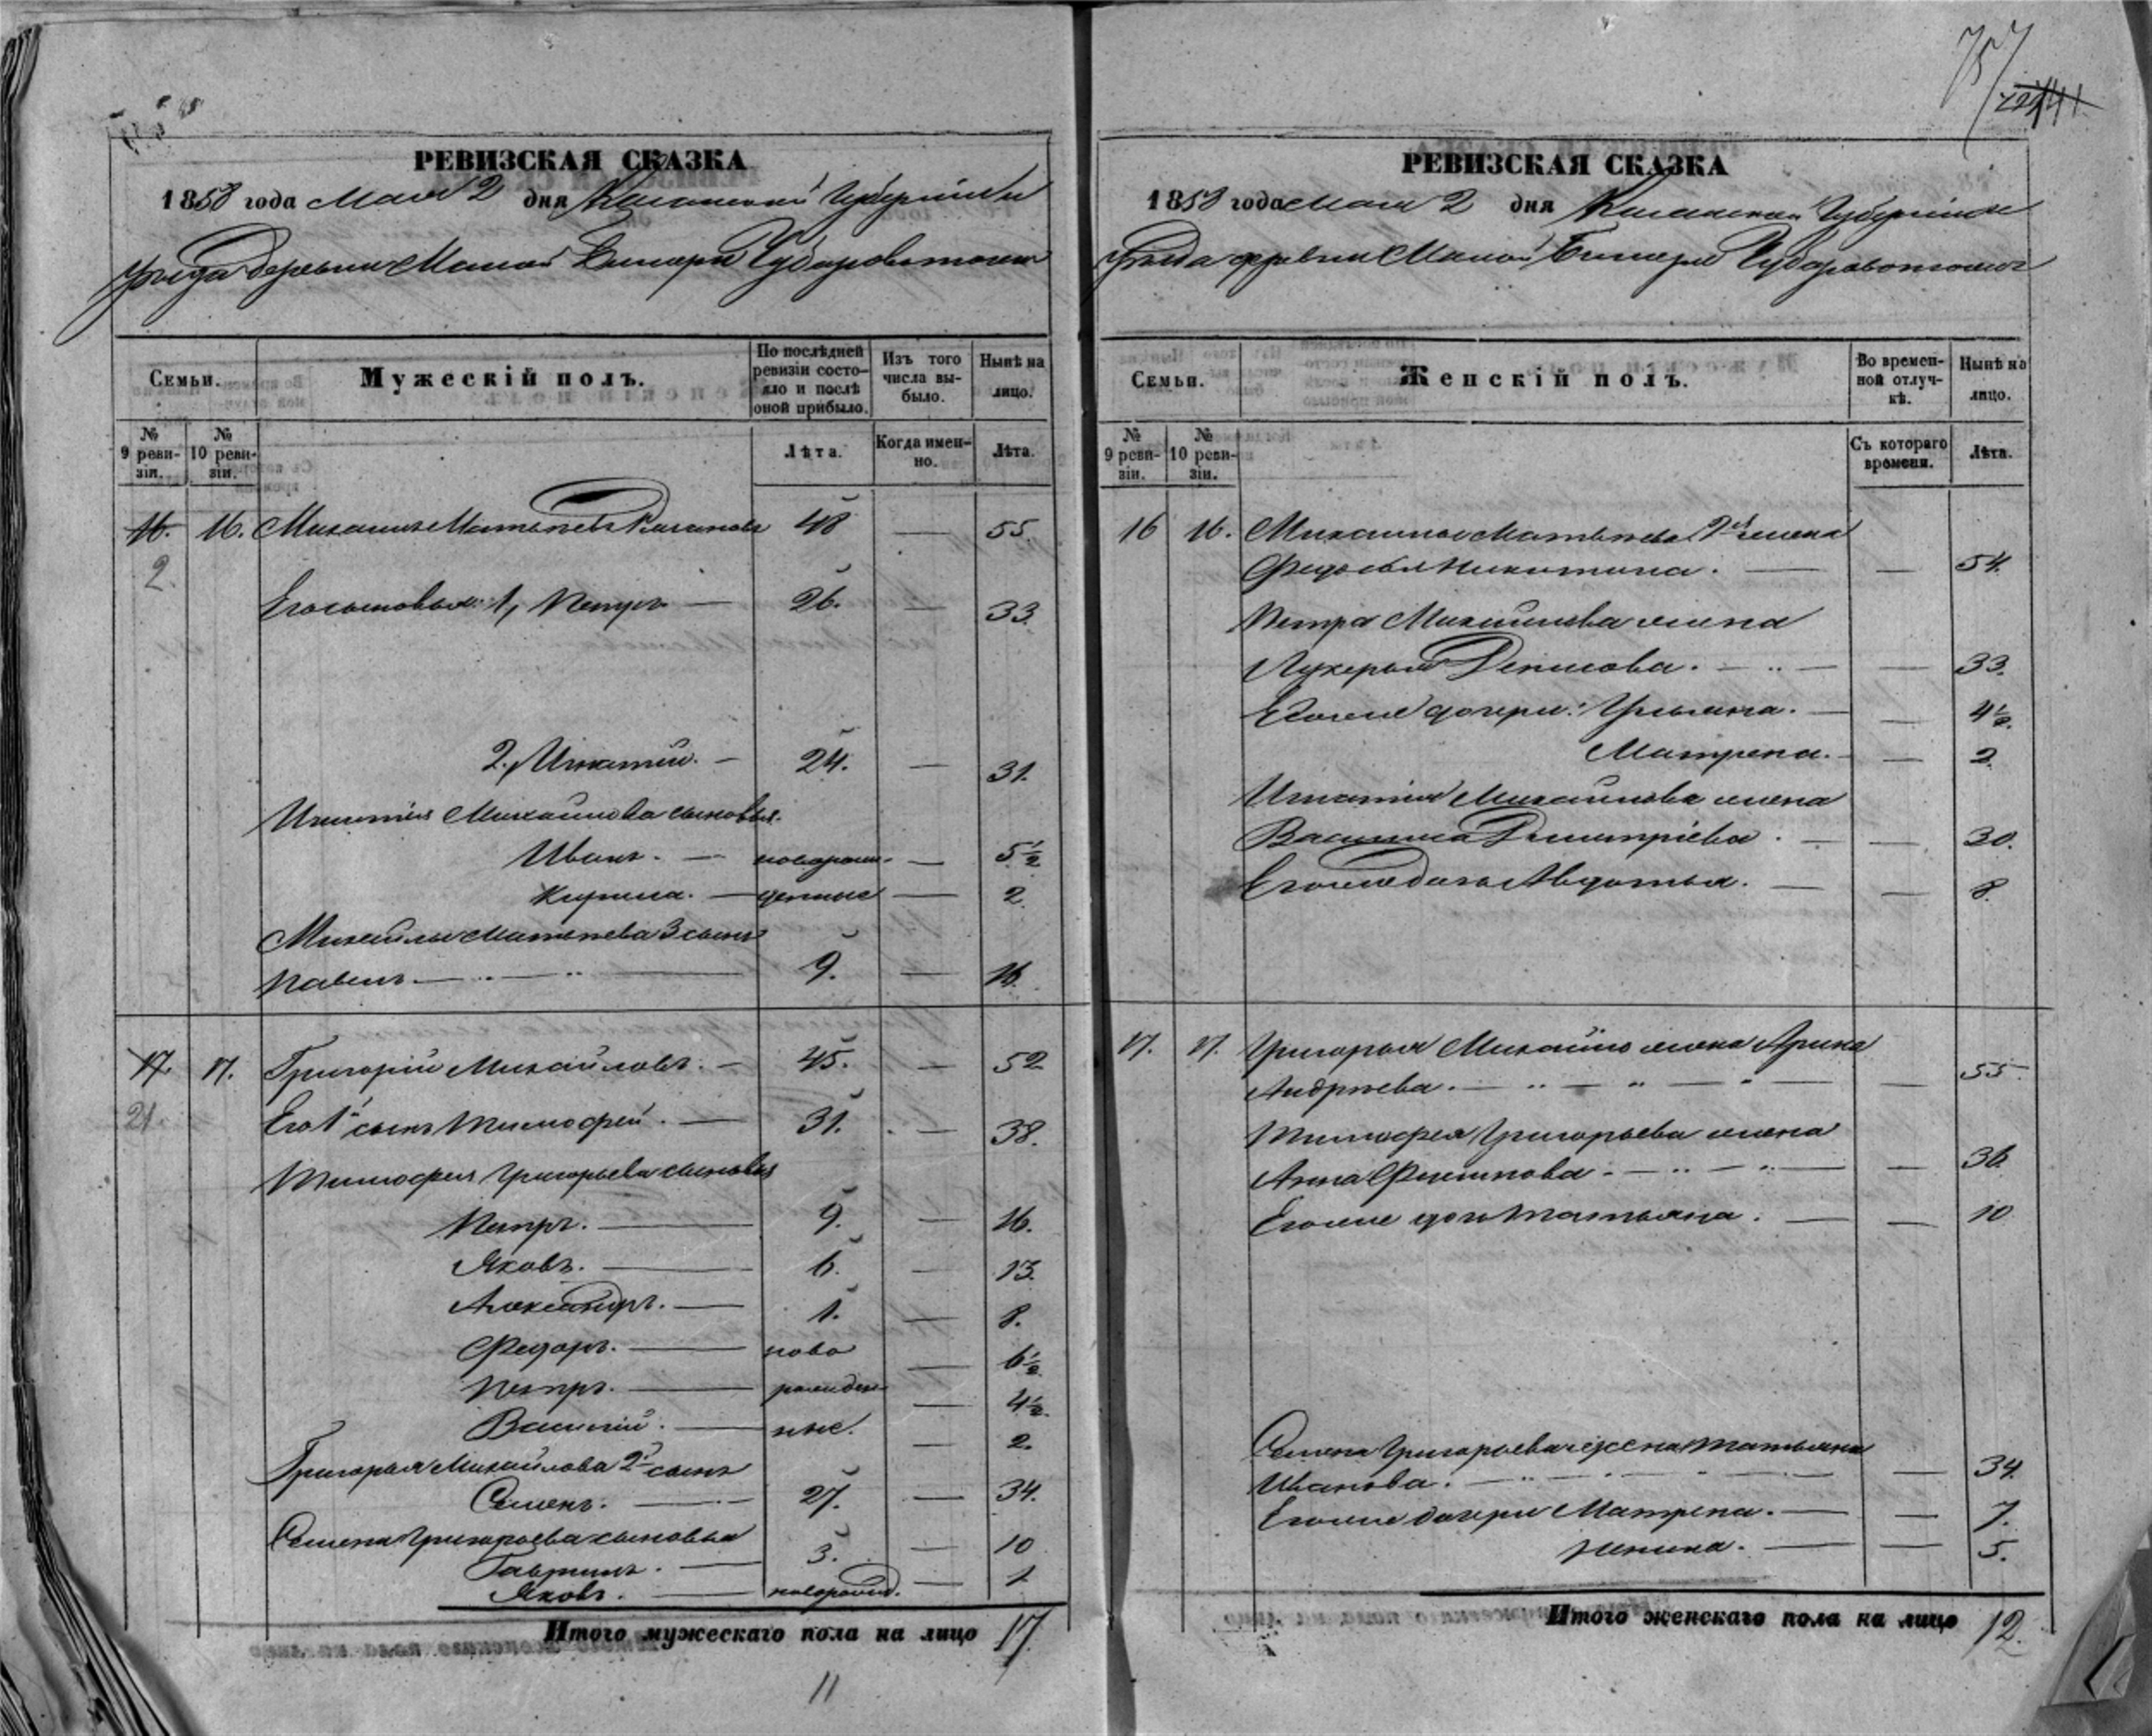 757
РЕВИЗСКАЯ СКАЗКА
1858 года Мая 2 дня Казанской Губерніи
уѣзда деревни Малой
Семьи.
Мужескій полъ.
По послѣдней ревизіи состо-
яло и послѣ оной прибыло.
Изъ того числа вы-
было.
Нынѣ на лицо.
№ 9 реви-
зіи.
№ 10 реви-
зіи.
Лѣта.
Когда имен-
но.
Лѣта.
16. 16. Михаилъ Матвѣевъ 48 — 55.
2.
Его сыновья: 1, Петръ — 26. — 33.
2. Игнатій. — 24. — 31.
Игнатія Михайлова сыновья
Иванъ. — новорож- — 5 1/2
Кирила. — денные — 2.
Михайлы Матвѣева 3 сынъ
Павелъ. — 9. — 16.
17. 17. Григорій Михайловъ. — 45. — 52
21.
Его 1й сынъ Тимофей. — 31. — 38.
Тимофея Григорьева сыновья
Петръ. — 9. — 16.
Яковъ. — 6. — 13.
Александръ. — 1. — 8.
Федоръ. — ново — 6 1/2
Петръ. — рожден — 4 1/2.
Василій. — ные. — 2.
Григорья Михайлова 2й сынъ
Семенъ. — 27. — 34.
Семена Григорьева сыновья
Гаврилъ. — 3. — 10
Яковъ. — новорожд. — 1
Итого мужескаго пола на лицо 17.
11
РЕВИЗСКАЯ СКАЗКА
1858 года мая 2 дня Казанской Губерніи
уѣзда деревни Малой
Семьи.
Женскій полъ.
Во времен-
ной отлуч-
кѣ.
Нынѣ на лицо.
№ 9 реви-
зіи.
№ 10 реви-
зіи.
Съ котораго времени.
Лѣта.
16 16. Михайлы Матвѣева 2я жена
Федосья Никитина. — — 54.
Петра Михайлова жена
Лукерья Денисова. — — 33.
Его же дочери: Ульяна. — — 4 1/2.
Матрена. — — 2.
Игнатія Михайлова жена
Василиса Дмитріева. — — 30.
Его же дочь Авдотья. — — 8.
17. 17. Григорья Михайло жена Арина
Андрѣева. — — 55
Тимофея Григорьева жена
Анна Филипова. — — 36.
Его же дочь Татьяна. — — 10
Семена Григорьева жена Татьяна
Иванова. — — 34.
Его же дочери Матрена. — — 7.
— — 5.
Итого женскаго пола на лицо 12.